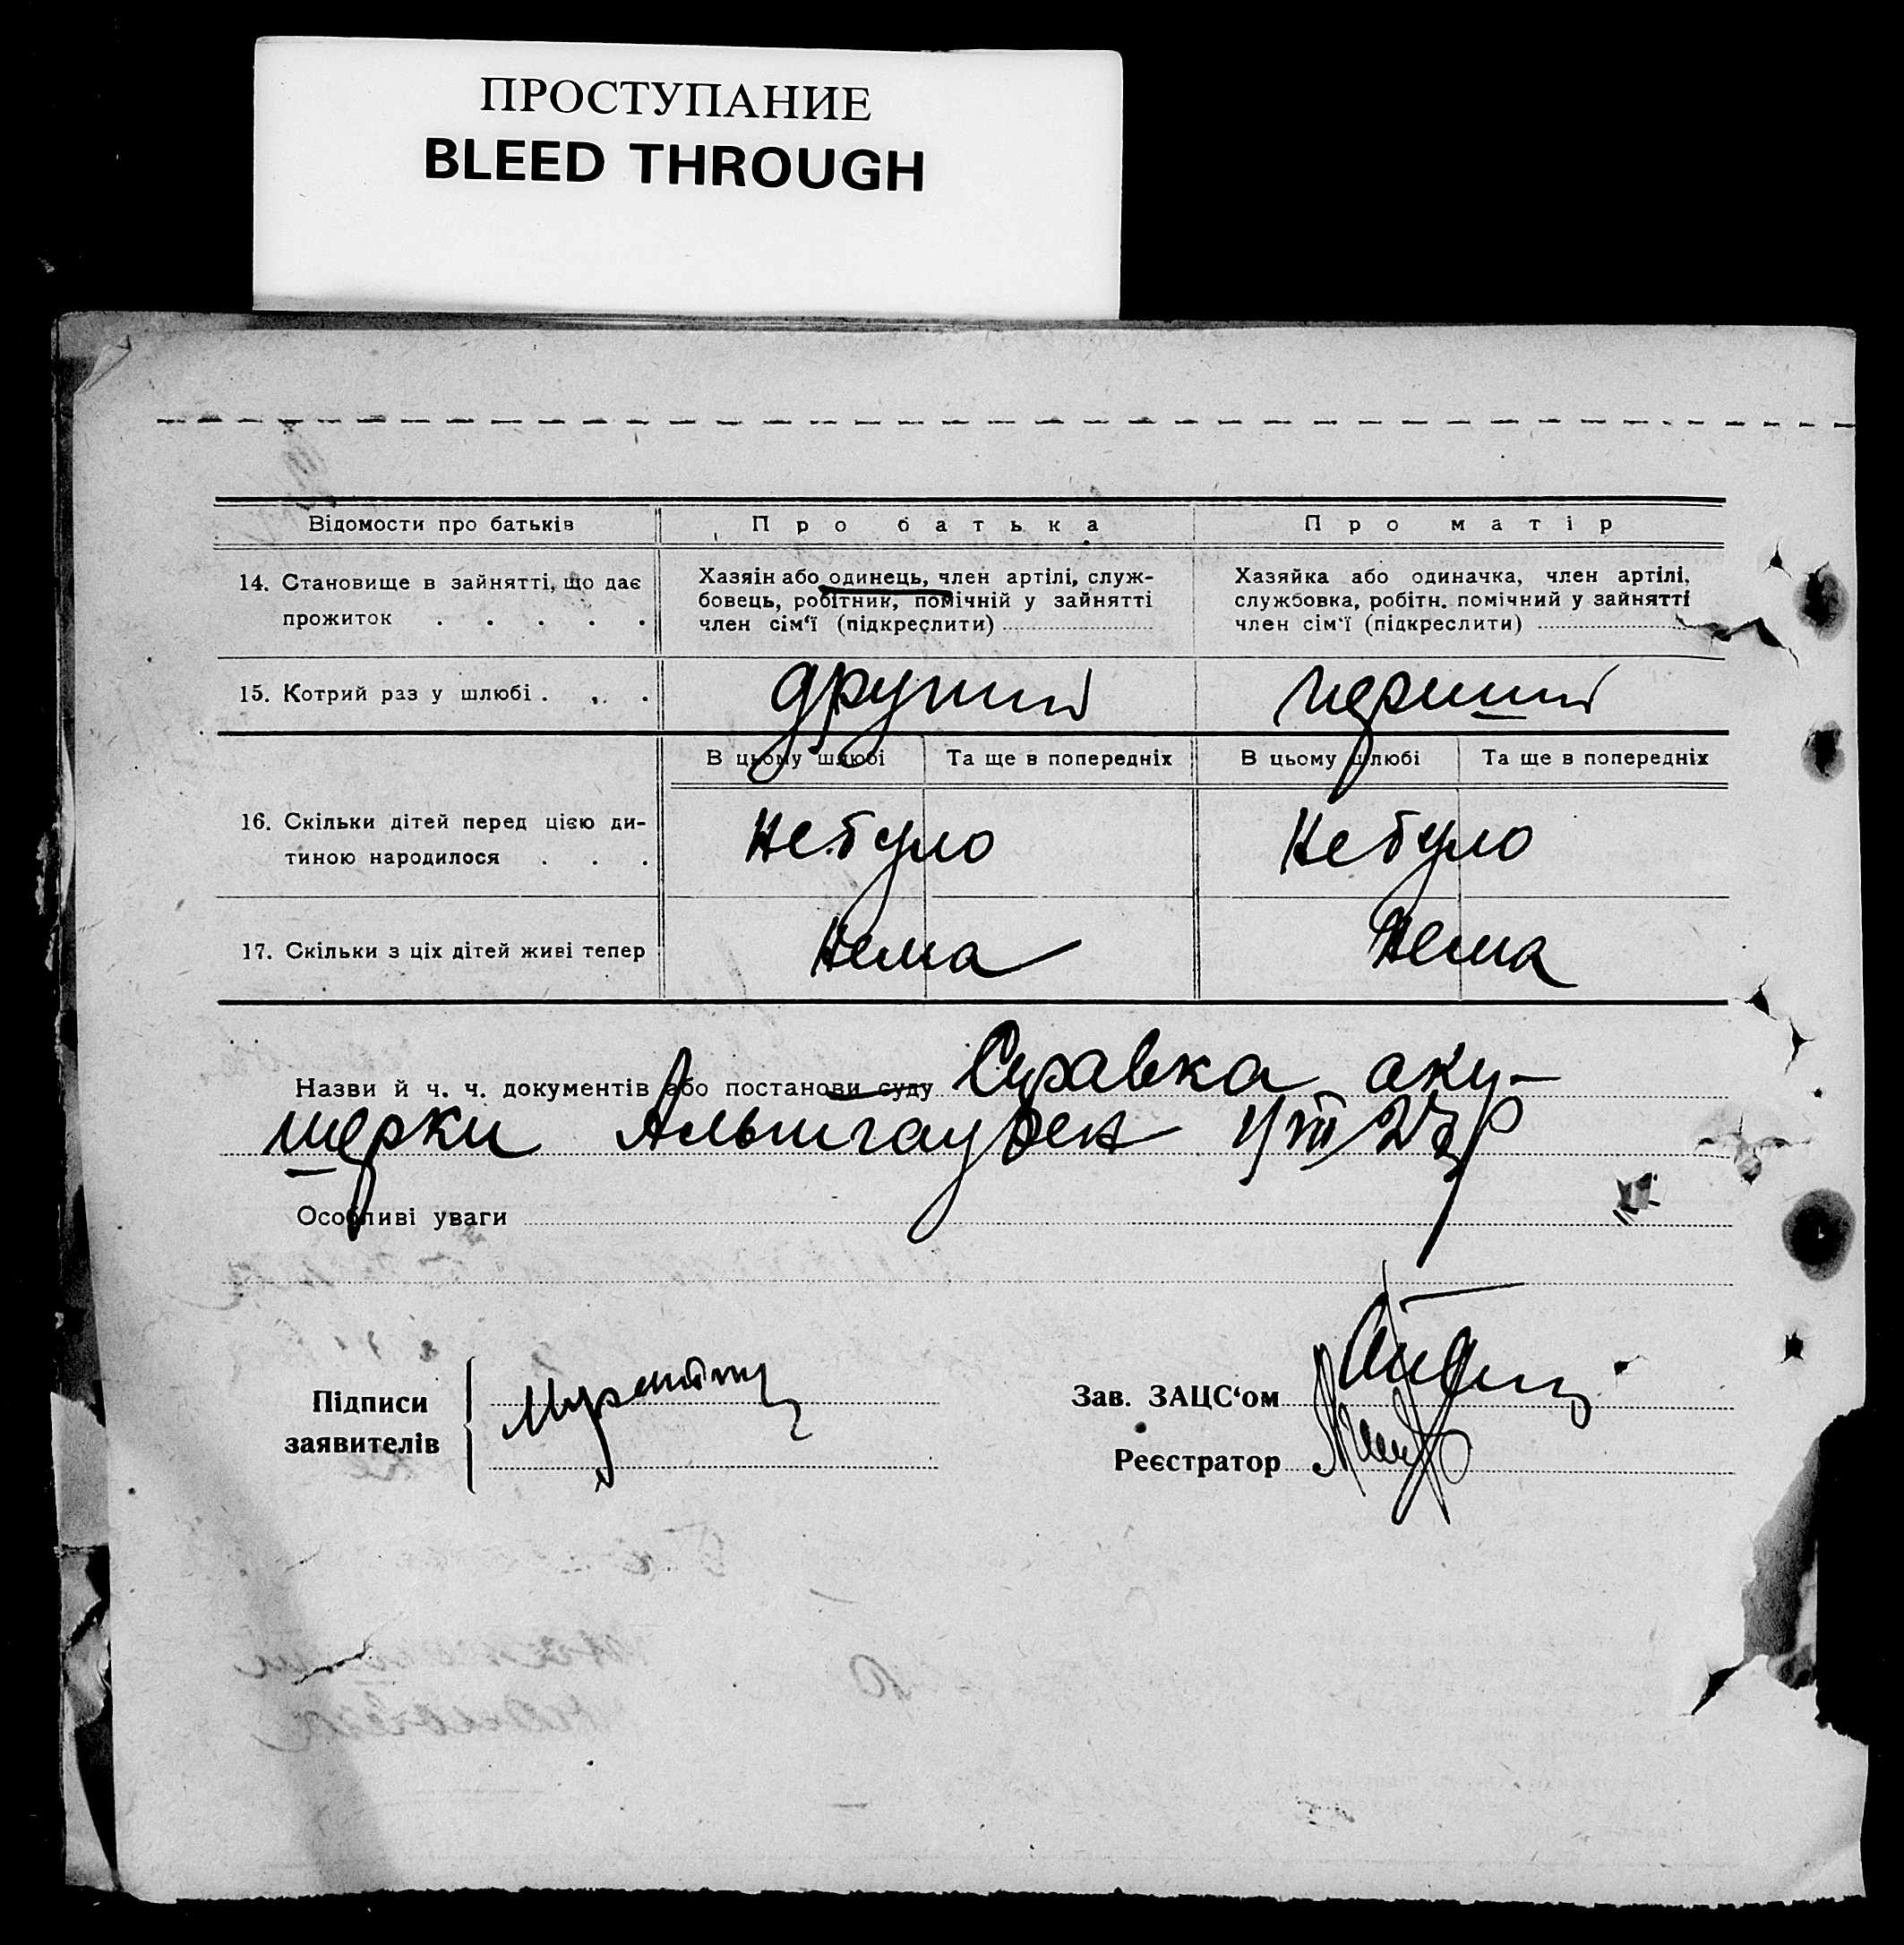 ПРОСТУПАНИЕ
BLEED THROUGH
Відомости про батьків Про батька Про матір
14. Становище в зайнятті, що дає прожиток . . . . .
Хазяін або одинець, член артілі, служ-
бовець, робітник, помічній у зайнятті
член сім‘ї (підкреслити)
Хазяйка або одиначка, член артілі,
службовка, робітн. помічний у зайнятті
член сім‘ї (підкреслити)
15. Котрий раз у шлюбі . . . другий перший
В цьому шлюбі Та ще в попередніх В цьому шлюбі Та ще в попередніх
16. Скільки дітей перед цією ди-
тиною народилося . . . Не було Не було
17. Скільки з ціх дітей живі тепер Нема Нема
Назви й ч. ч. документів або постанови суду Справка аку-
шерки
Особливі уваги
Підписи
заявителів
Зав. ЗАЦС‘ом
Реєстратор